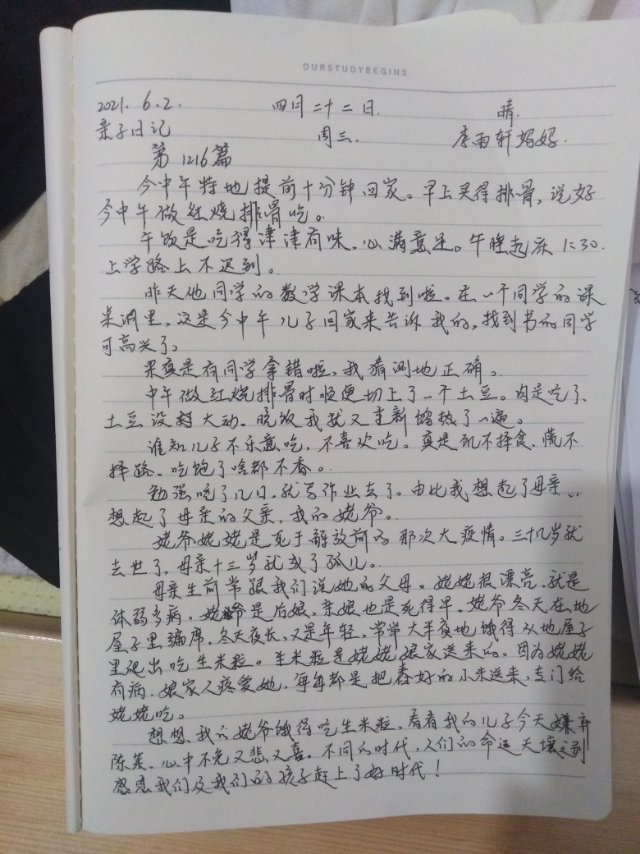 OURSTUDYBEGINS
2021. 6. 2. 四月二十二日. 晴.
亲子日记 周三. 李雨轩妈妈.
第1216篇
今中午特地提前十分钟回家。早上买得排骨,说好
今中午做红烧排骨吃。
午饭是吃得津津有味。心满意足。午睡起床1:30.
上学路上不迟到。
昨天他同学的数学课本找到啦。在一个同学的课
桌洞里。这是今中午儿子回家来告诉我的,找到书的同学
可高兴了。
果真是有同学拿错啦、我猜测地正确。
中午做红烧排骨时顺便切上了一个土豆。肉是吃了、
土豆没大动。晚饭我就又重新加热了一遍。
谁知儿子不乐意吃,不喜欢吃!真是饥不择食、慌不
择路、吃饱了啥都不香。
勉强吃了几口,就写作业去了。由此我想起了母亲、
想起了母亲的父亲,我的姥爷。
姥爷姥姥是死于解放前的那次大疫情。三十几岁就
去世了,母亲十三岁就成了孤儿。
母亲生前常跟我们说她的父母。姥姥很漂亮、就是
体弱多病,姥爷是后娘,亲娘也是死得早。姥爷冬天在地
屋子里编席,冬天夜长,又是年轻。常常大半夜地饿得从地屋子
里爬出吃生米粒。生米粒是姥姥娘家送来的。因为姥姥
有病,娘家人疼爱她,每每都是把舂好的小米送来,专门给
姥姥吃。
想想,我的姥爷饿得吃生米粒,看看我的儿子今天嫌弃
陈菜、心中不免又悲又喜。不同的时代,人们的命运天壤之别
感恩我们及我们的孩子赶上了好时代!